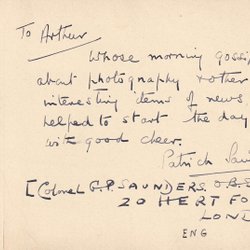 To Arthur
Whose morning gossi
about photography & other
interesting items of news
helped to start the day
with good cheer.
Patrick Sau
[Colonel G.P. SAUNDERS. O.B.E
20 HERT FO
LOND
ENG